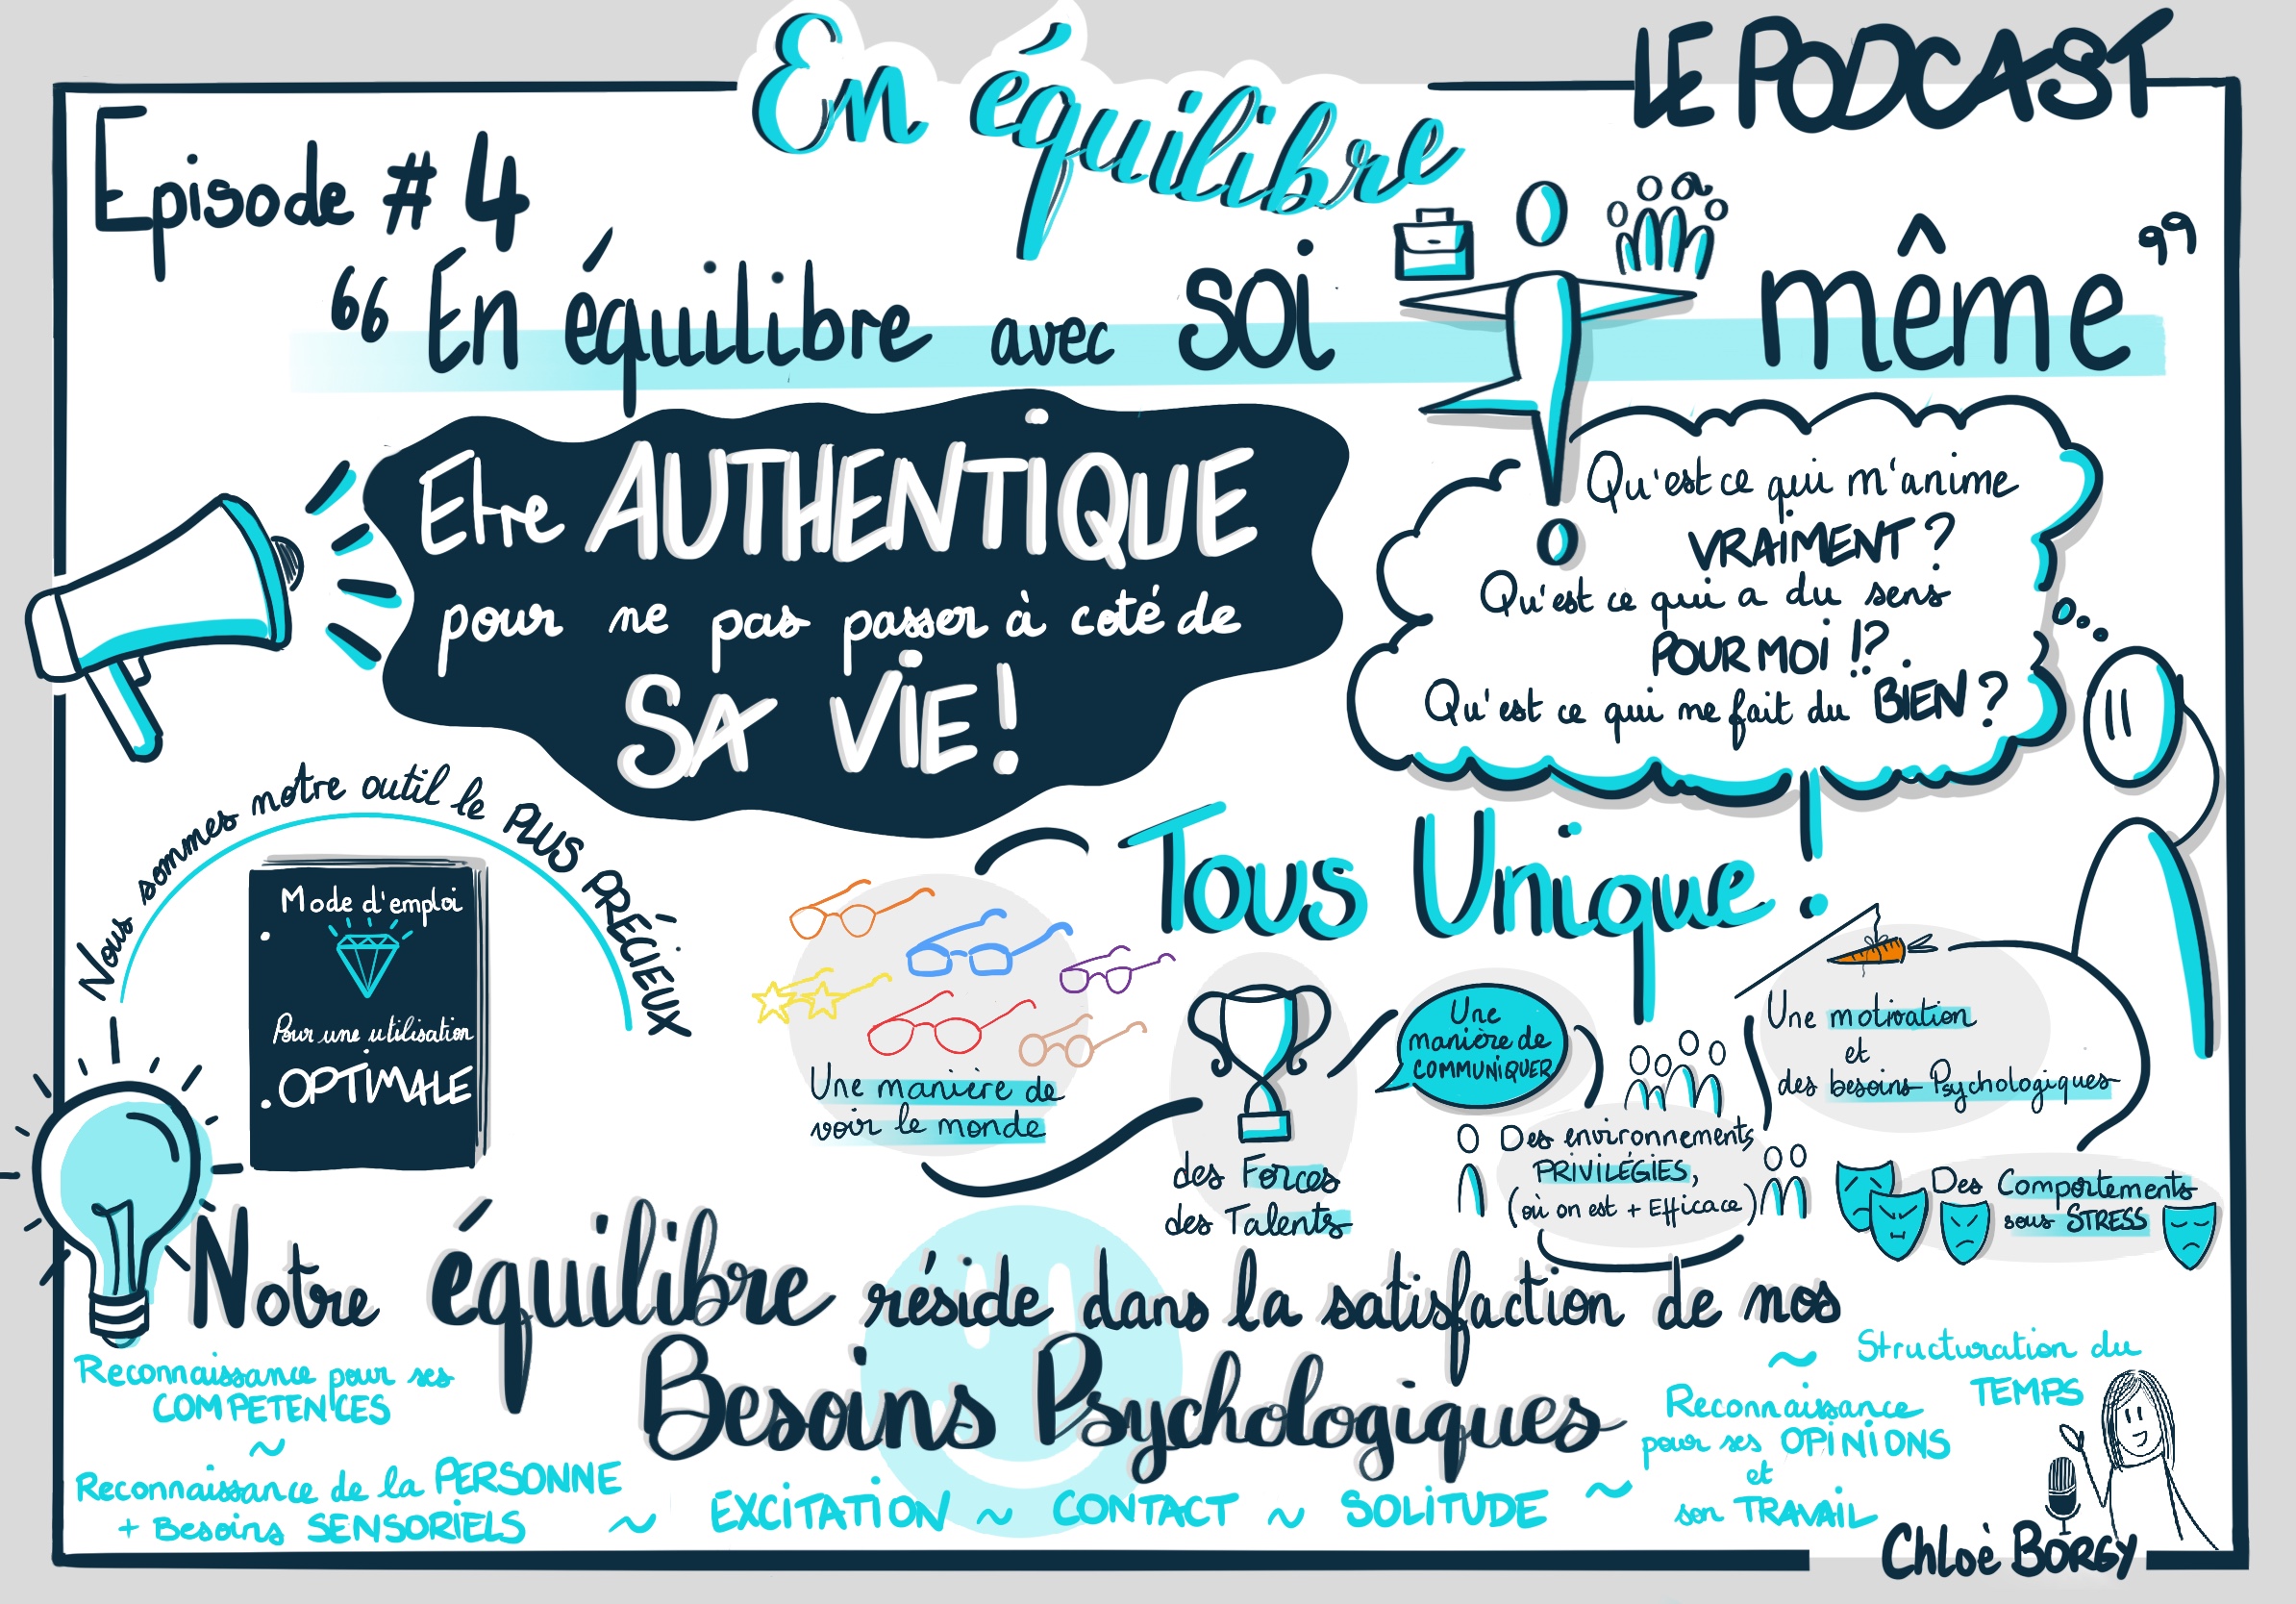 En équilibre
LE PODCAST
Episode # 4
“ En équilibre avec SOi même ”
Etre AUTHENTiQUE
pour ne pas passer à coté de
SA ViE !
Qu'est ce qui m'anime
VRAiMENT ?
Qu'est ce qui a du sens
POUR MOi !?
Qu'est ce qui me fait du BiEN ?
Nous sommes notre outil le PLUS PRÉCiEUX
Mode d'emploi
Pour une utilisation
OPTiMALE
Tous Unique !
Une manière de
voir le monde
des Forces
des Talents
Une
manière de
COMMUNiQUER
Des environnements
PRiViLÉGiES,
(où on est + Efficace)
Une motivation
et
des besoins Psychologiques
Des Comportements
sous STRESS
Notre équilibre réside dans la satisfaction de nos
Besoins Psychologiques
Reconnaissance pour ses
COMPETENCES
~
Reconnaissance de la PERSONNE
+ Besoins SENSORiELS
~ EXCiTATiON ~ CONTACT ~ SOLiTUDE ~
Reconnaissance
pour ses OPiNiONS
et
son TRAVAiL
~ Structuration du
TEMPS
Chloè BORGY